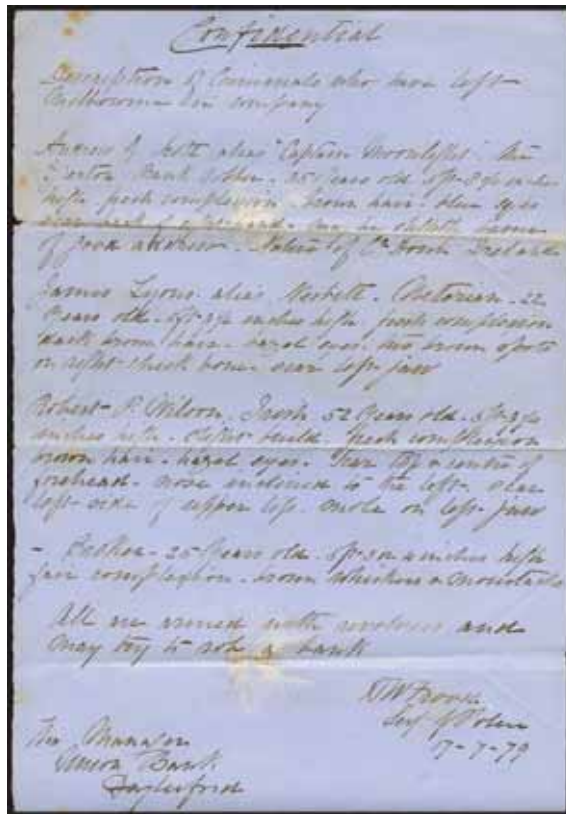 Confidential
Description of Criminals who have left
Melbourne in company
Andrew G Scott alias "Captain Moonlight" the
Egerton Bank robber. 35 Years old 5ft 8 inches
high fresh complexion brown hair. blue eyes
of good address. Native of Co Down Ireland
James Lyons alias Nesbett. Victorian. 22
Years old. 5ft inches high fresh complexion
dark brown hair. hazel eyes. two brown spots
on right cheek bone. scar left jaw
Robert P. Wilson. Irish 52 Years old. 5ft
inches high. slight build. fresh complexion
brown hair. hazel eyes. Scar top & centre of
forehead. nose inclined to the left. scar
left side of upper lip. mole on left jaw
- 25 Years old. 5ft inches high
fair complexion. brown whiskers & moustache
All are armed with revolvers and
may try to rob a bank
Sergt of Police
17-7-79
The Manager
Union Bank
Daylesford